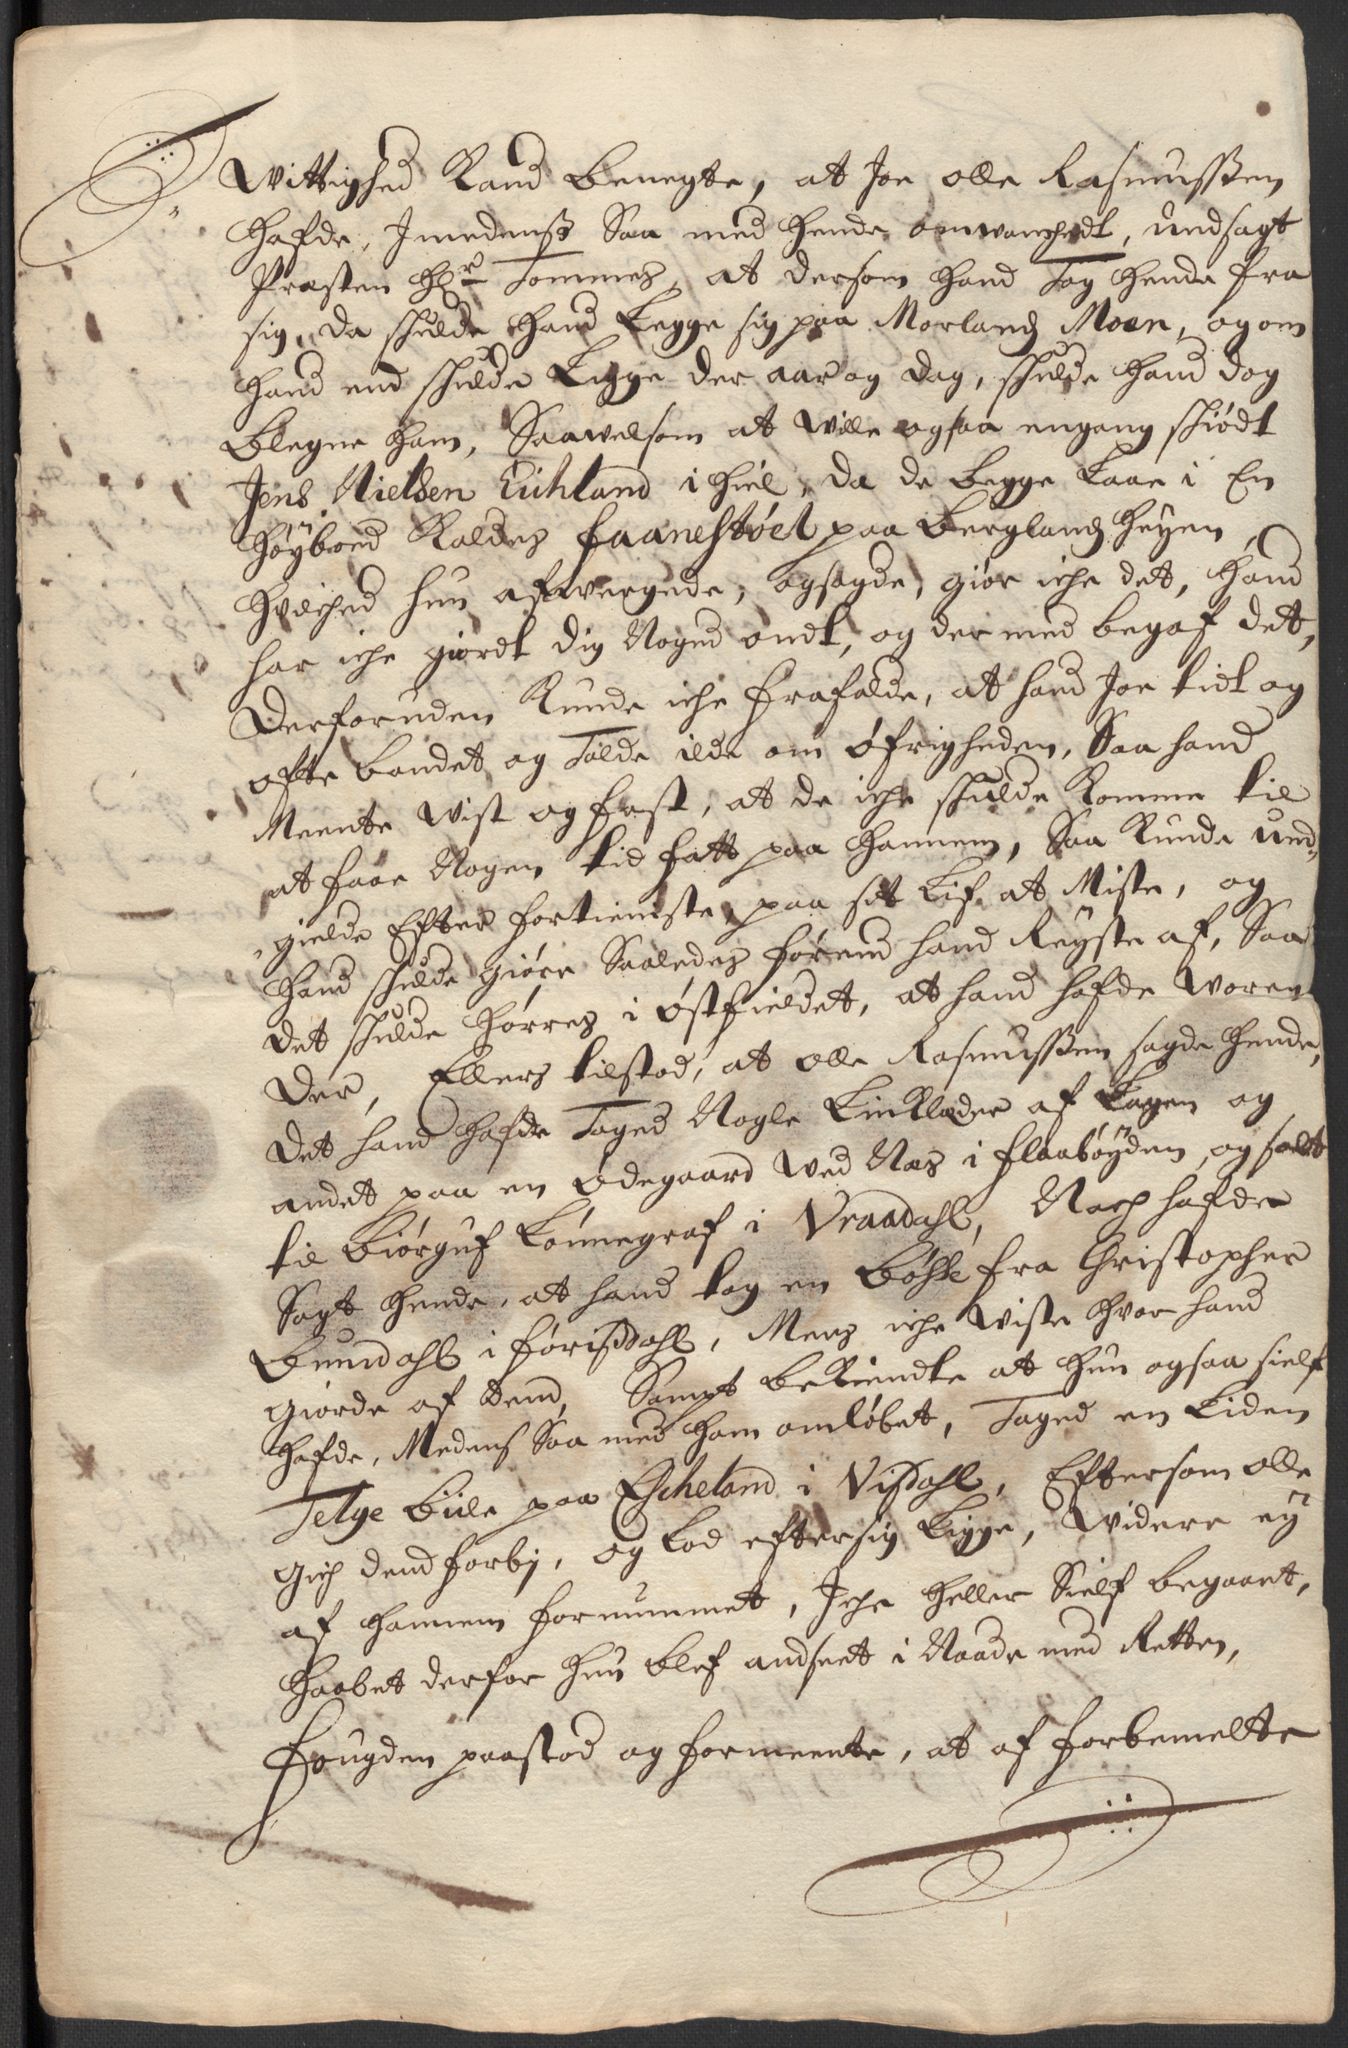 Wittighed Kand Benegte, at Joe olle Rasmussen
Hafde, Imedens Saa med Hende omwanchedt, undsagt
Præsten Hr Tommes, at dersom Hand Tog Hende fra
sig, da schulde Hand Legge sig paa Morlands Moen, og om
Hand end schulde Ligge der aar og dag, schulde Hand dog
Blegne Ham, Saawelsom at Wille ogsaa engang schiødt
Jens Nielsen Lichland i Hiel, da de Begge Laae i En
Høyboed Kaldes faanestøel paa Berglands Heyen,
Hvilched hun afwergede, og sagde, giør iche det, Hand
har iche giordt dig Noged ondt, og der med begaf det,
Derforuden Kunde iche frafalde, at hand Joe tidt og
ofte bandet og Talde ilde om Øfrigheden, Saa hand
Meente Wist og fast, at de iche schulde Komme til
at faae Nogen tid fatt paa Hannem, Saa Kunde und-
gielde Efter fortieniste, paa sit Lif at Miste, og
Hand schulde giøre Saaledes førend hand Reyste af, Saa
det schulde Hørres i Østfieldet, at hand hafde Woren
der, Ellers tilstod, at olle Rasmussen sagde Hende,
det hand hafde Taged Nogle Linklæder af Lagen og
andet paa en Ødegaard Wed Næs i flaabøyden, og solt
til Biørguf Lønnegraf i Vraadahl, Noch hafde
Sagt Hende, at hand tog en Bøsse fra Christopher
Bunndahl i førisdahl, Mens iche Wiste Hvor hand
giorde af dend, Sampt Bekiendte at Hun ogsaa sielf
Hafde, Medens Saa med Ham omløbet, Taged en Liden
Telge Biile paa Escheland i Visdahl, Eftersom olle
gich dend forbj, og Lod eftersig Ligge, Widere ey
af Hannem fornummet, Iche Heller Sielf begaaet,
Haabet derfor Hun blef andseet i Naade med Retten,
Fougden paastod og formeente, at af forbemelte